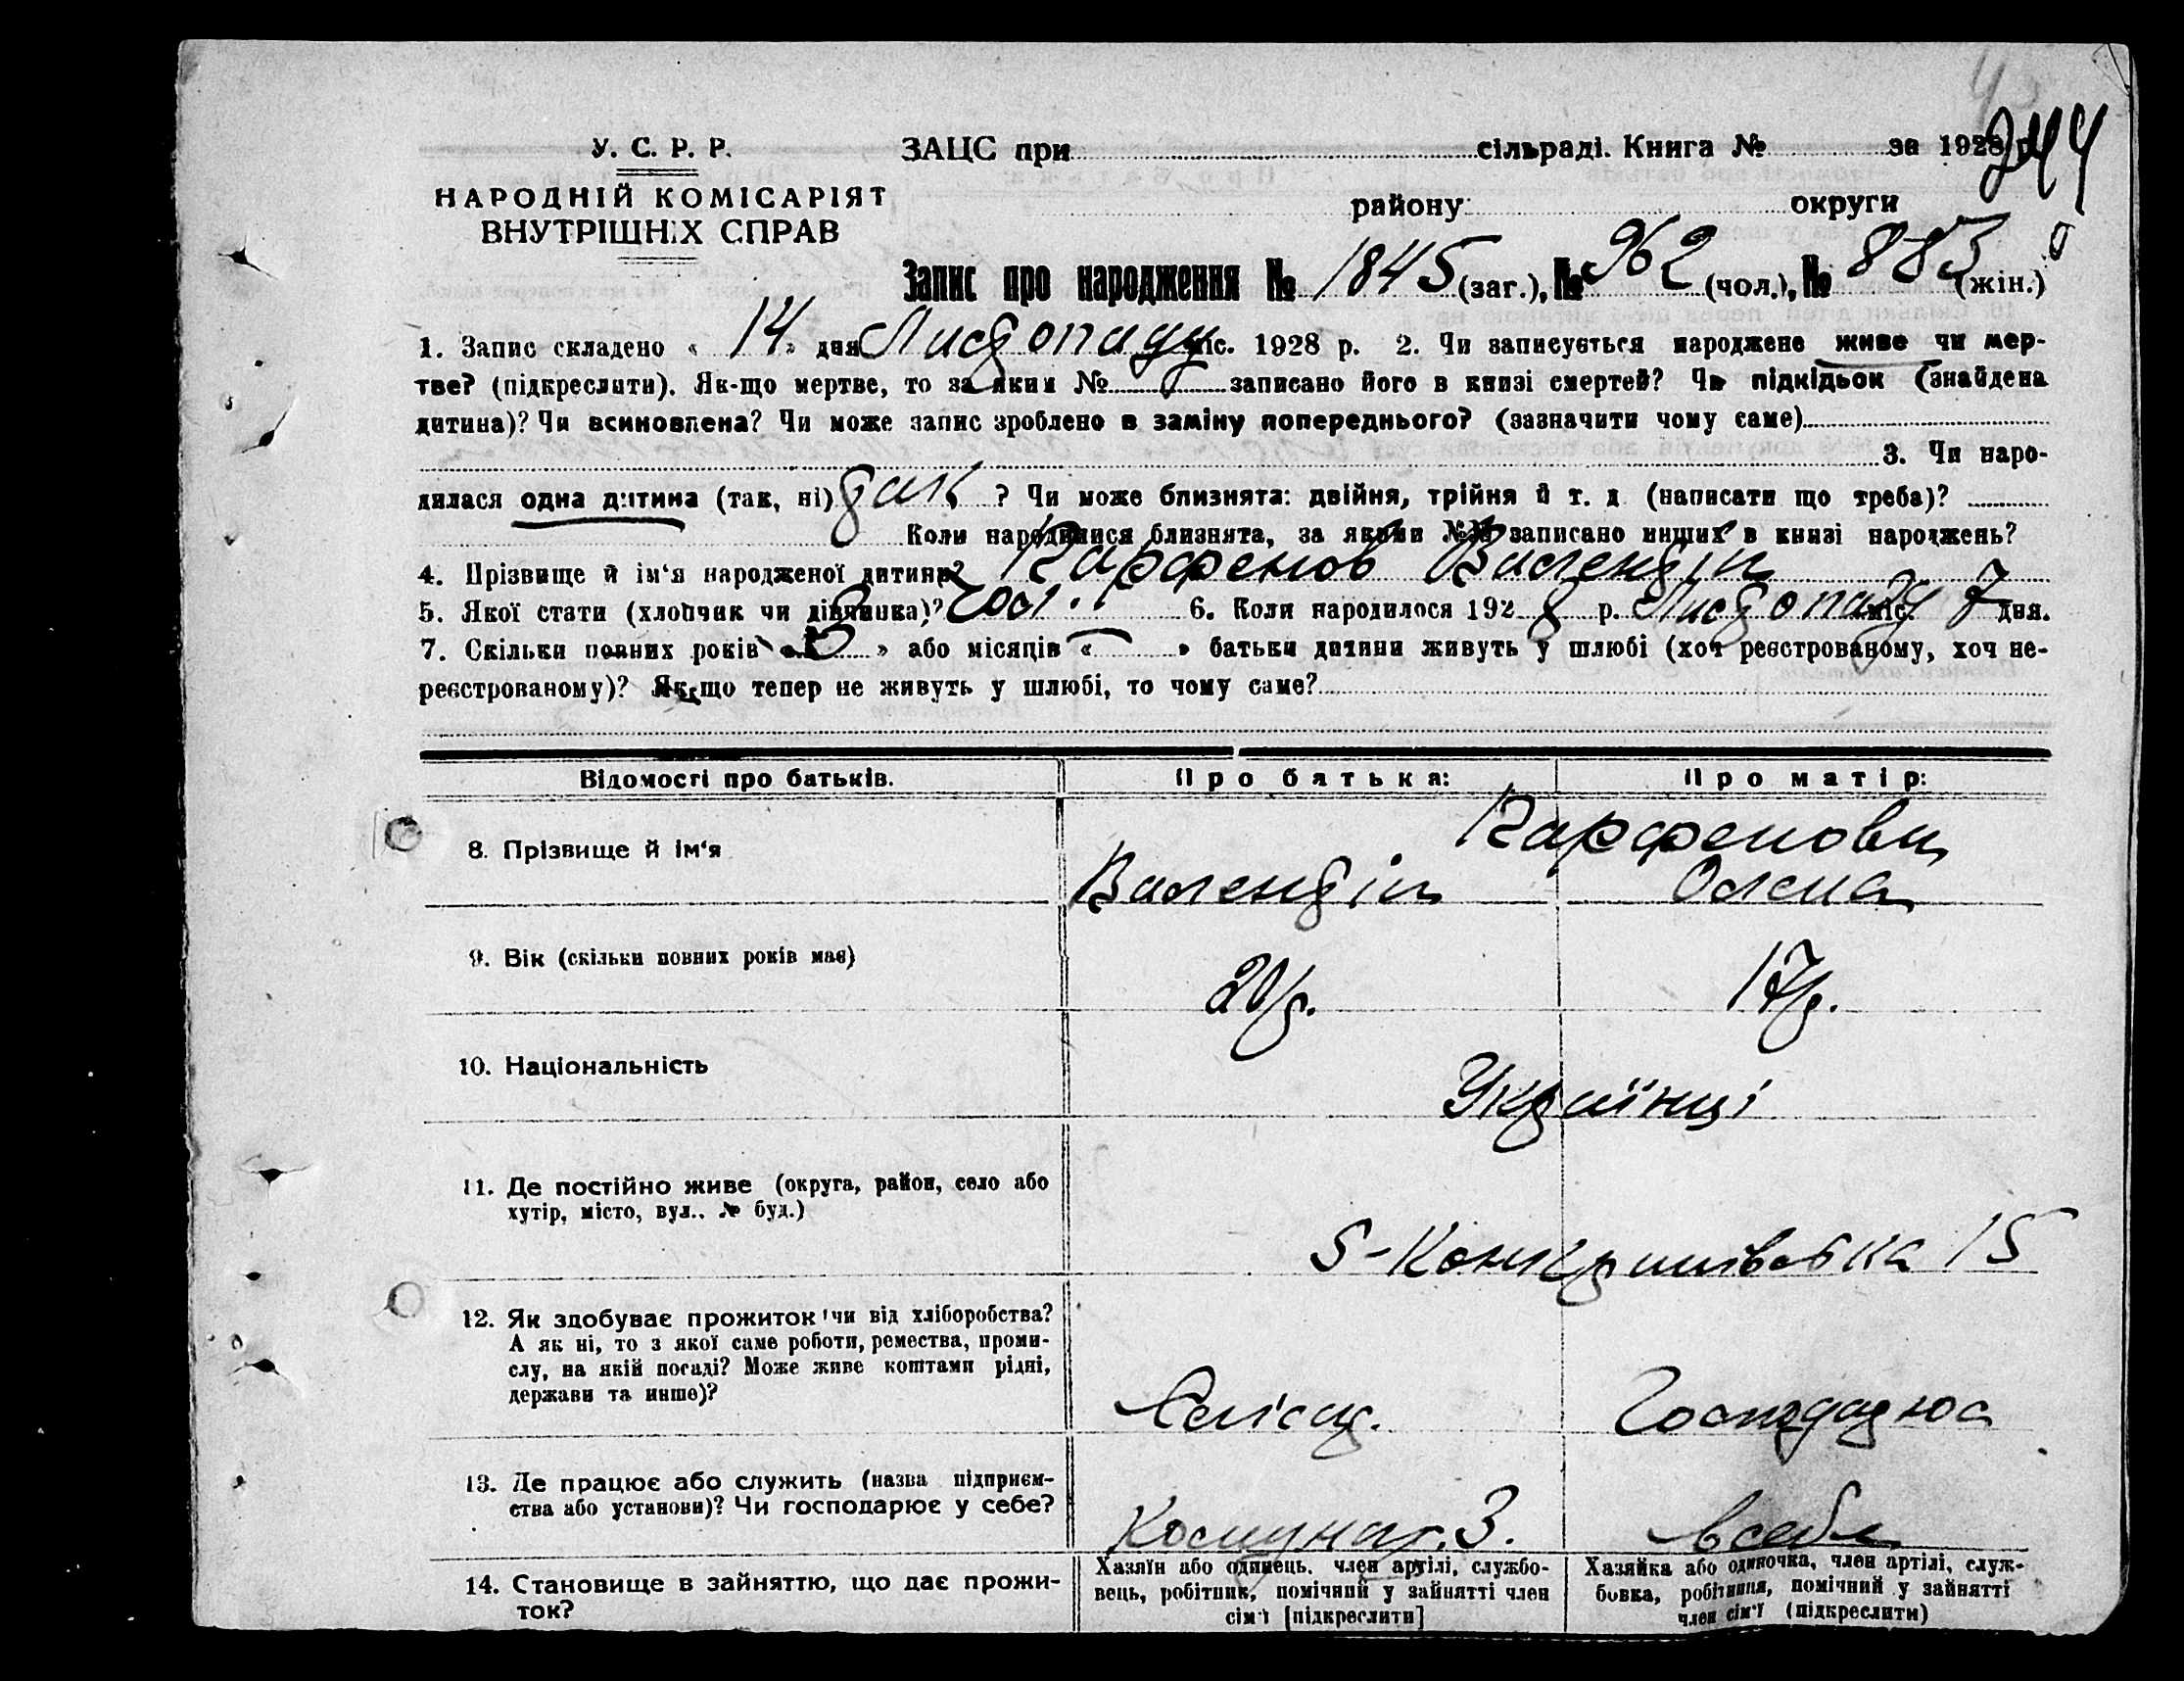 244
У. С. Р. Р.
НАРОДНІЙ КОМІСАРІЯТ
ВНУТРІШНІХ СПРАВ
ЗАЦС при сільраді. Книга № за 1928 р.
району округи
Запис про народження № 1845 (заг.), № 962 (чол.), № 883 (жін.)
1. Запис складено « 14 » дня Листопаду міс. 1928 р. 2. Чи записується народжене живе чи мер-
тве? (підкреслити). Як-що мертве, то за яким № записано його в книзі смертей? Чи підкідьок (знайдена
дитина)? Чи всиновлена? Чи може запис зроблено в заміну попереднього? (зазначити чому саме)
3. Чи наро-
дилася одна дитина (так, ні) так ? Чи може близнята: двійня, трійня й т. д (написати що треба)?
Коли народилися близнята, за якими №№ записано инших в книзі народжень?
4. Прізвище й ім'я народженої дитини? Парфенов Валентін
5. Якої стати (хлопчик чи дівчинка)? чол. 6. Коли народилося 1928 р. Листопаду міс. 7 дня.
7. Скільки повних років « » або місяців « — » батьки дитини живуть у шлюбі (хоч реєстрованому, хоч не-
реєстрованому)? Як-що тепер не живуть у шлюбі, то чому саме?
Відомості про батьків. Про батька: Про матір:
8. Прізвище й ім'я Парфенови
Валентін Олена
9. Вік (скільки повних років має) 20 р. 17 р.
10. Національність Українці
11. Де постійно живе (округа, район, село або
хутір, місто, вул., № буд.)
15
12. Як здобуває прожиток чи від хліборобства?
А як ні, то з якої саме роботи, ремества, проми-
слу, на якій посаді? Може живе коштами рідні,
держави та инше)?
Слісар. Господарює
13. Де працює або служить (назва підприєм-
ства або установи)? Чи господарює у себе?
Комунар. З. в себе
14. Становище в зайняттю, що дає прожи-
ток?
Хазяїн або одинець, член артілі, службо-
вець, робітник, помічний у зайнятті член
сім'ї [підкреслити]
Хазяйка або одиночка, член артілі, служ-
бовка, робітниця, помічний у зайнятті
член сім'ї (підкреслити)